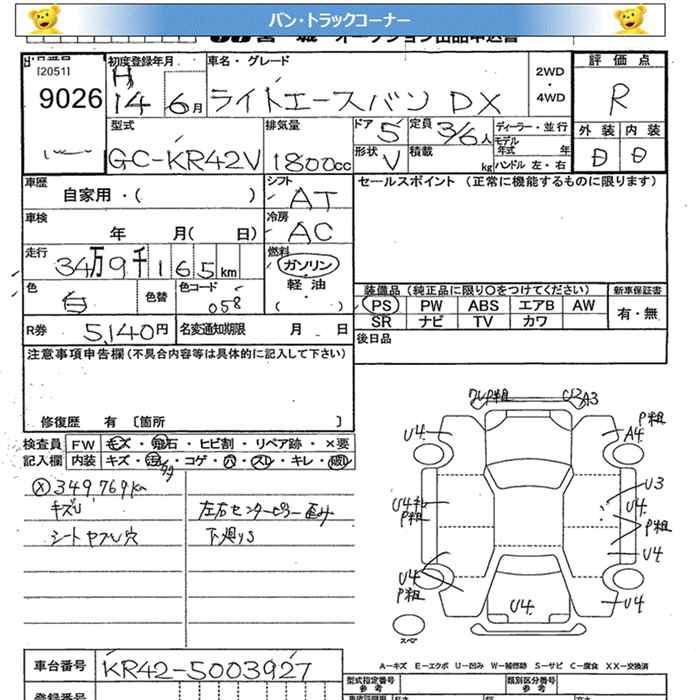 バン・トラックコーナー
オークション出品申込書
[2051]
9026
初度登録年月
H
14 6月
車名・グレード
ライトエースバン DX
2WD
・
4WD
評価点
R
外装 内装
D D
型式
GC-KR42V
排気量
1800cc
ドア 5
定員 3/6人
ディーラー・並行
モデル年式 年
形状 V
積載 kg
ハンドル 左・右
車歴
自家用・( )
シフト
AT
セールスポイント (正常に機能するものに限ります)
車検
年 月( 日)
冷房
AC
走行
34万9千165km
燃料
ガソリン
軽油
( )
色
白
色替
色コード
058
装備品 (純正品に限り○をつけてください)
PS PW ABS エアB AW
SR ナビ TV カワ
新車保証書
有・無
R券 5,140円
名変通知期限 月 日
後日品
注意事項申告欄(不具合内容等は具体的に記入して下さい)
修復歴 有 〔箇所 〕
検査員
記入欄
FW モズ・飛石・ヒビ割・リペア跡・×要
内装 キズ・汚レ・コゲ・穴・スレ・キレ・破レ
349,769km
キズU
シートヤブレ穴
左右センターピラー歪み
下廻りS
U2 A3
P粗
U4
A4
U3
U4
P粗
P粗
U4
U4
P粗
U4
U4
スペア
A-キズ E-エクボ U-凹み W-補修跡 S-サビ C-腐食 XX-交換済
車台番号
KR42-5003927
型式指定番号
参考
類別区分番号
参考